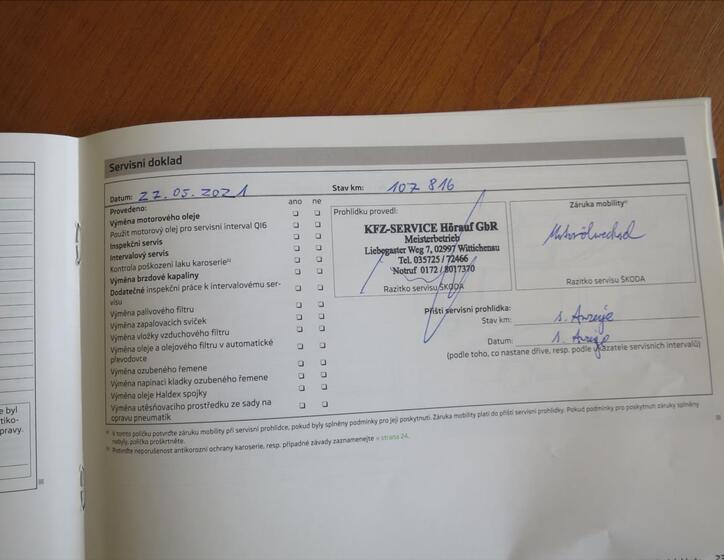 Servisní doklad
Datum: 27.05.2021
Stav km: 107 816
ano ne
Provedeno:
Výměna motorového oleje
Použit motorový olej pro servisní interval QI6
Inspekční servis
Intervalový servis
Kontrola poškození laku karoserie
Výměna brzdové kapaliny
Dodatečné inspekční práce k intervalovému ser-
visu
Výměna palivového filtru
Výměna zapalovacích svíček
Výměna vložky vzduchového filtru
Výměna oleje a olejového filtru v automatické
převodovce
Výměna ozubeného řemene
Výměna napínací kladky ozubeného řemene
Výměna oleje Haldex spojky
Výměna utěsňovacího prostředku ze sady na
opravu pneumatik
Prohlídku provedl:
KFZ-SERVICE Hörauf GbR
Meisterbetrieb
Liebegaster Weg 7, 02997 Wittichenau
Tel. 035725 / 72466
Notruf 0172 / 8017370
Razítko servisu ŠKODA
Záruka mobility
Motorölwechsel
Razítko servisu ŠKODA
Příští servisní prohlídka:
Stav km: s. Anzeige
Datum: s. Anzeige
(podle toho, co nastane dříve, resp. podle ukazatele servisních intervalů)
V tomto políčku potvrďte záruku mobility při servisní prohlídce, pokud byly splněny podmínky pro její poskytnutí. Záruka mobility platí do příští servisní prohlídky. Pokud podmínky pro poskytnutí záruky splněny
nebyly, políčko proškrtněte.
Potvrďte neporušenost antikorozní ochrany karoserie, resp. případné závady zaznamenejte » strana 24.
e byl
tiko-
pravy.